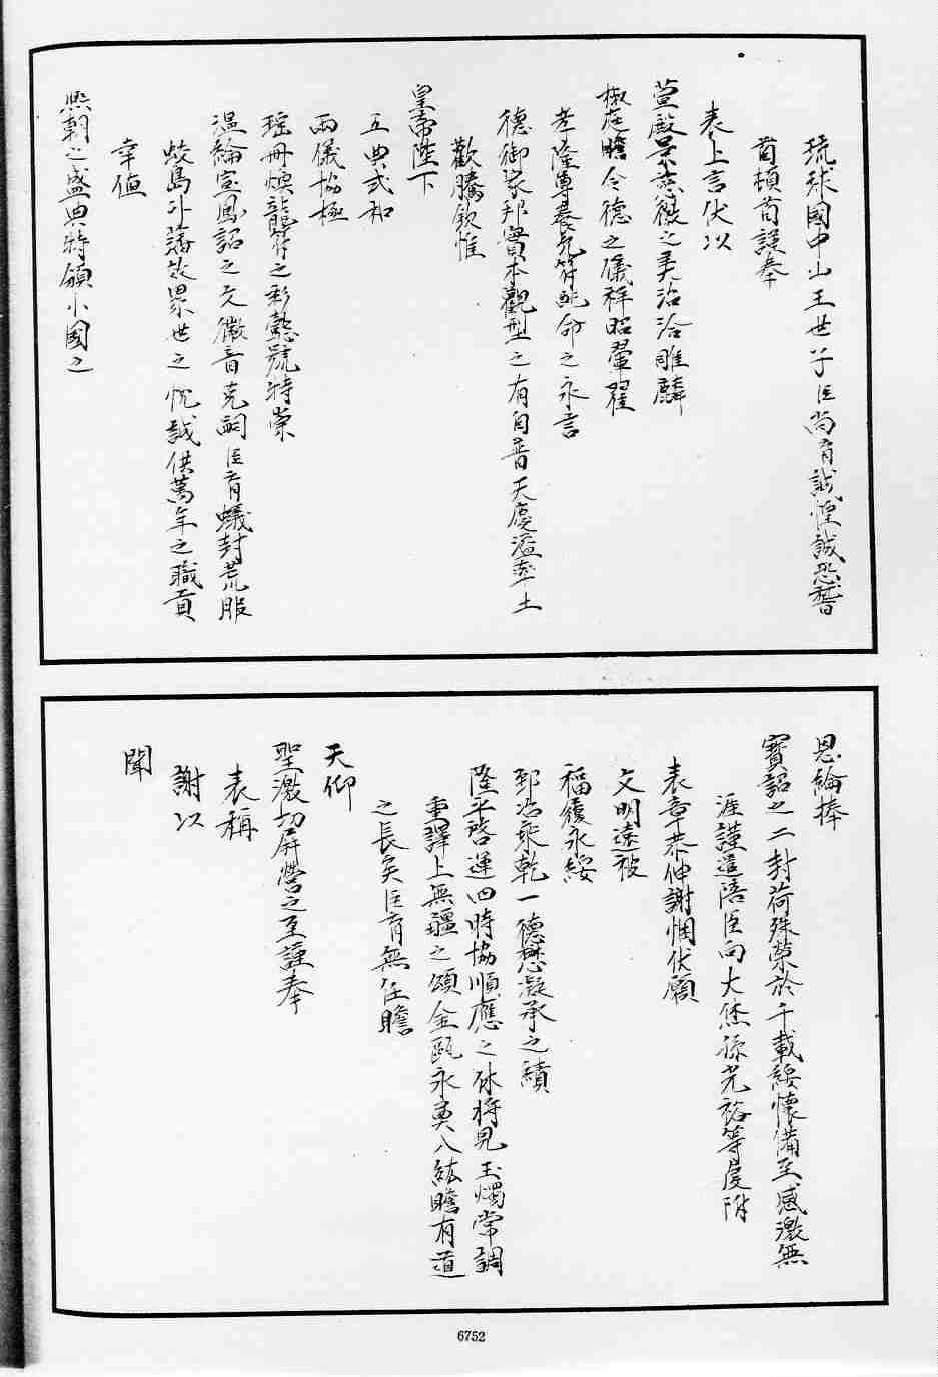 琉球國中山王世子臣尚育誠惶誠恐稽
首頓首謹奉
表上言伏以
萱殿景慈徽之美治洽雎麟
椒庭瞻令德之儀祥昭翬翟
孝隆尊養允符配命之永言
德御家邦實本觀型之有自普天慶溢率土
歡騰欽惟
皇帝陛下
五典式和
兩儀協極
瑤冊煥龍章之彩懿號特崇
溫綸宣鳳詔之文徽音克嗣臣育蟻封荒服
蛟島外藩效累世之忱誠供萬年之職貢
幸值
熙朝之盛典特頒小國之
恩綸捧
寶詔之二封荷殊榮於千載綏懷備至感激無
涯謹遣陪臣向大烋孫光裕等虔附
表章恭伸謝悃伏願
文明遠被
福履永綏
郅治乘乾一德懋凝承之績
隆平啓運四時協順應之休將見玉燭常調
重譯上無疆之頌金甌永奠八紘瞻有道
之長矣臣育無任瞻
天仰
聖激切屏營之至謹奉
表稱
謝以
聞
6752